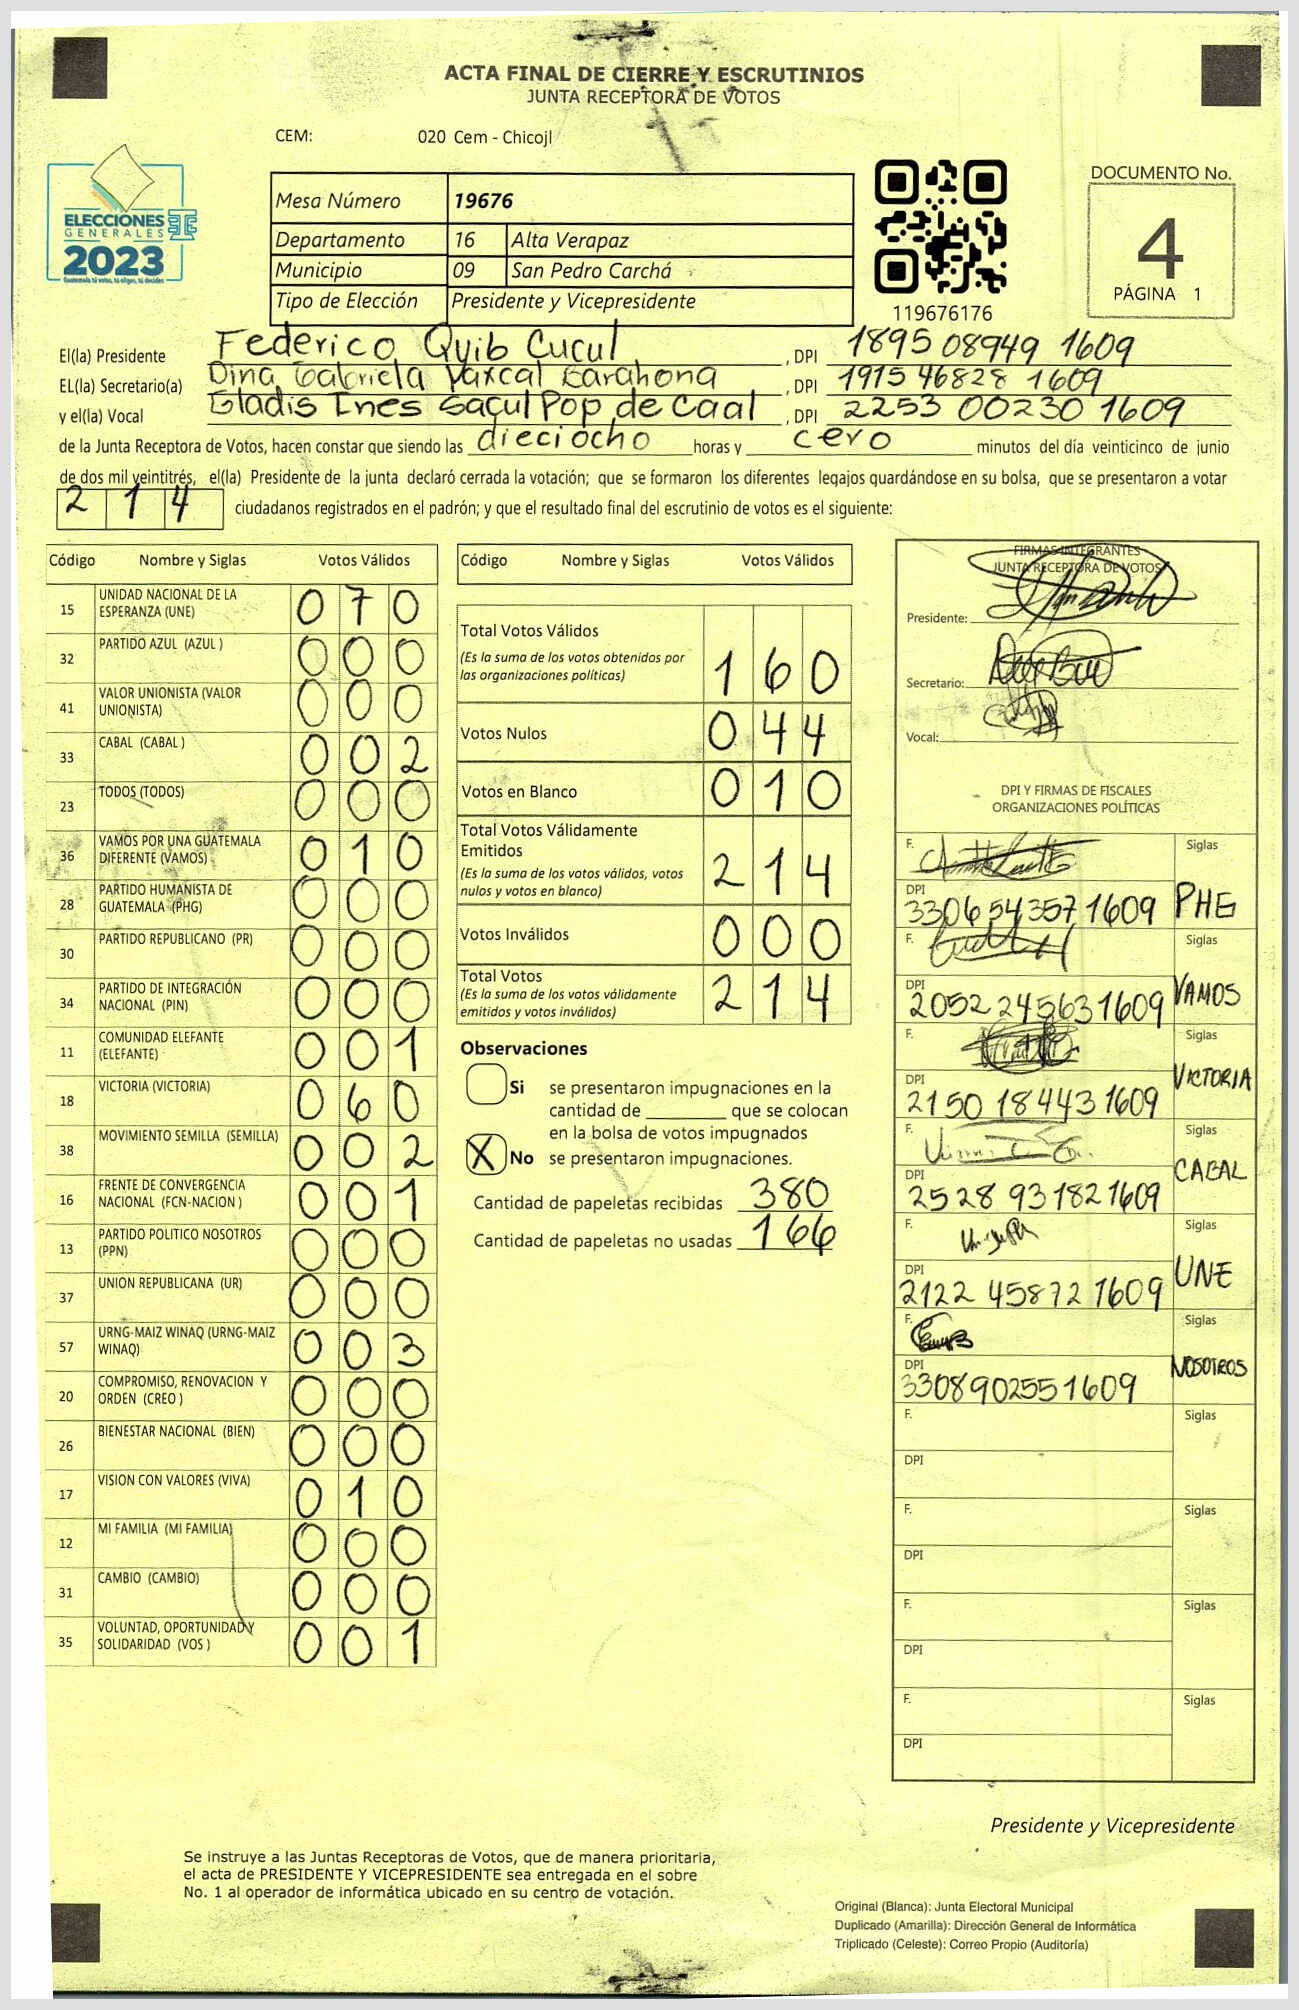 ACTA FINAL DE CIERRE Y ESCRUTINIOS
JUNTA RECEPTORA DE VOTOS
CEM: 020 Cem - Chicojl
ELECCIONES
GENERALES
2023
Guatemala tú votas, tú eliges, tú decides
Mesa Número 19676
Departamento 16 Alta Verapaz
Municipio 09 San Pedro Carchá
Tipo de Elección Presidente y Vicepresidente
119676176
DOCUMENTO No.
4
PÁGINA 1
El(la) Presidente Federico Quib Cucul, DPI 1895 08949 1609
EL(la) Secretario(a) Dina Gabriela Yaxcal Barahona, DPI 1915 46828 1609
y el(la) Vocal Gladis Ines Sacul Pop de Caal, DPI 2253 00230 1609
de la Junta Receptora de Votos, hacen constar que siendo las dieciocho horas y cero minutos del día veinticinco de junio
de dos mil veintitrés, el(la) Presidente de la junta declaró cerrada la votación; que se formaron los diferentes legajos guardándose en su bolsa, que se presentaron a votar
214 ciudadanos registrados en el padrón; y que el resultado final del escrutinio de votos es el siguiente:
Código Nombre y Siglas Votos Válidos
15 UNIDAD NACIONAL DE LA ESPERANZA (UNE) 070
32 PARTIDO AZUL (AZUL ) 000
41 VALOR UNIONISTA (VALOR UNIONISTA) 000
33 CABAL (CABAL ) 002
23 TODOS (TODOS) 000
36 VAMOS POR UNA GUATEMALA DIFERENTE (VAMOS) 010
28 PARTIDO HUMANISTA DE GUATEMALA (PHG) 000
30 PARTIDO REPUBLICANO (PR) 000
34 PARTIDO DE INTEGRACIÓN NACIONAL (PIN) 000
11 COMUNIDAD ELEFANTE (ELEFANTE) 001
18 VICTORIA (VICTORIA) 060
38 MOVIMIENTO SEMILLA (SEMILLA) 002
16 FRENTE DE CONVERGENCIA NACIONAL (FCN-NACION ) 001
13 PARTIDO POLITICO NOSOTROS (PPN) 000
37 UNION REPUBLICANA (UR) 000
57 URNG-MAIZ WINAQ (URNG-MAIZ WINAQ) 003
20 COMPROMISO, RENOVACION Y ORDEN (CREO ) 000
26 BIENESTAR NACIONAL (BIEN) 000
17 VISION CON VALORES (VIVA) 010
12 MI FAMILIA (MI FAMILIA) 000
31 CAMBIO (CAMBIO) 000
35 VOLUNTAD, OPORTUNIDAD Y SOLIDARIDAD (VOS ) 001
Código Nombre y Siglas Votos Válidos
Total Votos Válidos 160
(Es la suma de los votos obtenidos por
las organizaciones políticas)
Votos Nulos 044
Votos en Blanco 010
Total Votos Válidamente
Emitidos 214
(Es la suma de los votos válidos, votos
nulos y votos en blanco)
Votos Inválidos 000
Total Votos 214
(Es la suma de los votos válidamente
emitidos y votos inválidos)
Observaciones
Si se presentaron impugnaciones en la
cantidad de ________ que se colocan
en la bolsa de votos impugnados
X No se presentaron impugnaciones.
Cantidad de papeletas recibidas 380
Cantidad de papeletas no usadas 166
FIRMAS INTEGRANTES
JUNTA RECEPTORA DE VOTOS
Presidente:
Secretario:
Vocal:
DPI Y FIRMAS DE FISCALES
ORGANIZACIONES POLÍTICAS
F. Siglas
DPI 3306 54357 1609 PHG
F. Siglas
DPI 2052 24563 1609 VAMOS
F. Siglas
DPI 2150 18443 1609 VICTORIA
F. Siglas
DPI 2528 93182 1609 CABAL
F. Siglas
DPI 2122 45872 1609 UNE
F. Siglas
DPI 3308902551609 NOSOTROS
F. Siglas
DPI
F. Siglas
DPI
F. Siglas
DPI
F. Siglas
DPI
Presidente y Vicepresidente
Se instruye a las Juntas Receptoras de Votos, que de manera prioritaria,
el acta de PRESIDENTE Y VICEPRESIDENTE sea entregada en el sobre
No. 1 al operador de informática ubicado en su centro de votación.
Original (Blanca): Junta Electoral Municipal
Duplicado (Amarilla): Dirección General de Informática
Triplicado (Celeste): Correo Propio (Auditoría)